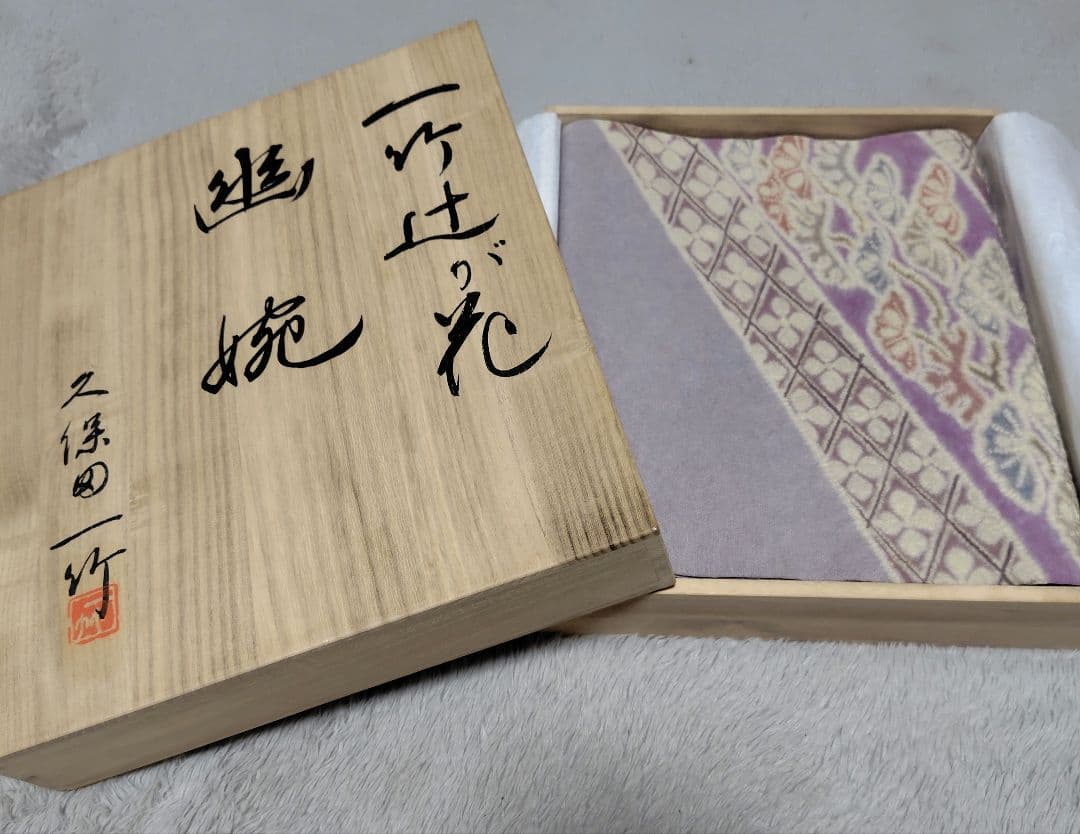 一竹辻が花
幽婉
久保田一竹